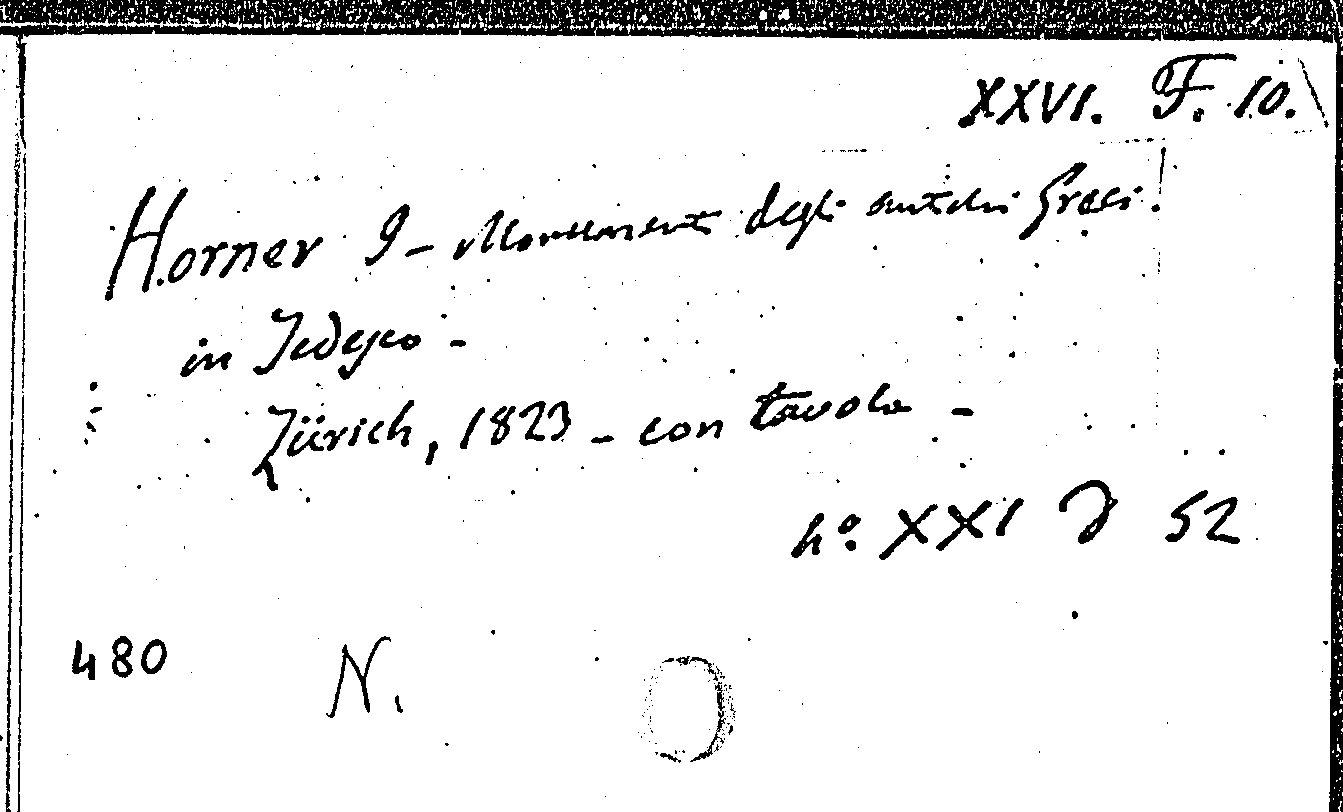 XXVI. F. 10.
Horner J - Monumenti degli antichi Greci.
in Tedesco -
Zürich, 1823 - con tavole -
4º. XXI D 52
480 N.